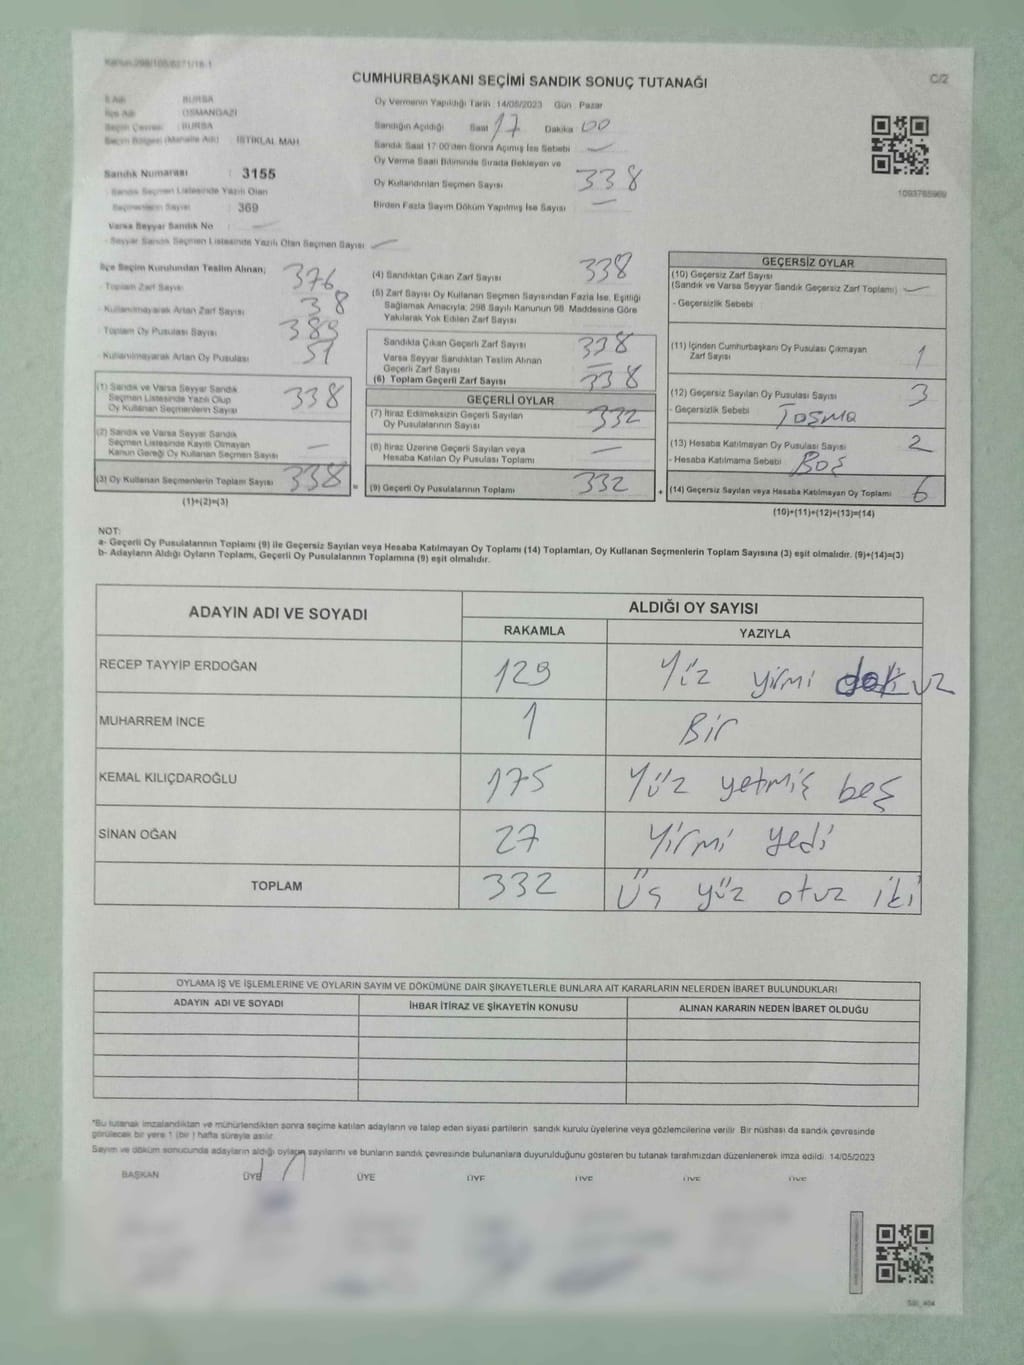 Kanun:298/105/6271/16-1
CUMHURBAŞKANI SEÇİMİ SANDIK SONUÇ TUTANAĞI
C/2
İl Adı : BURSA
İlçe Adı : OSMANGAZİ
Seçim Çevresi : BURSA
Seçim Bölgesi (Mahalle Adı) : İSTİKLAL MAH.
Sandık Numarası : 3155
Sandık Seçmen Listesinde Yazılı Olan
Seçmenlerin Sayısı : 369
Varsa Seyyar Sandık No : —
- Seyyar Sandık Seçmen Listesinde Yazılı Olan Seçmen Sayısı : —
Oy Vermenin Yapıldığı Tarih : 14/05/2023 Gün : Pazar
Sandığın Açıldığı Saat 17 Dakika 00
Sandık Saat 17:00'den Sonra Açımış İse Sebebi —
Oy Verme Saati Bitiminde Sırada Bekleyen ve
Oy Kullandırılan Seçmen Sayısı 338
Birden Fazla Sayım Döküm Yapılmış İse Sayısı —
1093765969
İlçe Seçim Kurulundan Teslim Alınan;
- Toplam Zarf Sayısı 376
- Kullanılmayarak Artan Zarf Sayısı 38
- Toplam Oy Pusulası Sayısı 389
- Kullanılmayarak Artan Oy Pusulası 51
(1) Sandık ve Varsa Seyyar Sandık
Seçmen Listesinde Yazılı Olup
Oy Kullanan Seçmenlerin Sayısı 338
(2) Sandık ve Varsa Seyyar Sandık
Seçmen Listesinde Kayıtlı Olmayan
Kanun Gereği Oy Kullanan Seçmen Sayısı —
(3) Oy Kullanan Seçmenlerin Toplam Sayısı 338 =
(1)+(2)=(3)
(4) Sandıktan Çıkan Zarf Sayısı 338
(5) Zarf Sayısı Oy Kullanan Seçmen Sayısından Fazla İse, Eşitliği
Sağlamak Amacıyla; 298 Sayılı Kanunun 98. Maddesine Göre
Yakılarak Yok Edilen Zarf Sayısı —
Sandıkta Çıkan Geçerli Zarf Sayısı 338
Varsa Seyyar Sandıktan Teslim Alınan
Geçerli Zarf Sayısı —
(6) Toplam Geçerli Zarf Sayısı 338
GEÇERLİ OYLAR
(7) İtiraz Edilmeksizin Geçerli Sayılan
Oy Pusulalarının Sayısı 332
(8) İtiraz Üzerine Geçerli Sayılan veya
Hesaba Katılan Oy Pusulası Toplamı —
(9) Geçerli Oy Pusulalarının Toplamı 332 +
GEÇERSİZ OYLAR
(10) Geçersiz Zarf Sayısı
(Sandık ve Varsa Seyyar Sandık Geçersiz Zarf Toplamı) —
- Geçersizlik Sebebi :
(11) İçinden Cumhurbaşkanı Oy Pusulası Çıkmayan
Zarf Sayısı 1
(12) Geçersiz Sayılan Oy Pusulası Sayısı 3
- Geçersizlik Sebebi : Taşma
(13) Hesaba Katılmayan Oy Pusulası Sayısı 2
- Hesaba Katılmama Sebebi : Boş
(14) Geçersiz Sayılan veya Hesaba Katılmayan Oy Toplamı 6
(10)+(11)+(12)+(13)=(14)
NOT:
a- Geçerli Oy Pusulalarının Toplamı (9) ile Geçersiz Sayılan veya Hesaba Katılmayan Oy Toplamı (14) Toplamları, Oy Kullanan Seçmenlerin Toplam Sayısına (3) eşit olmalıdır. (9)+(14)=(3)
b- Adayların Aldığı Oyların Toplamı, Geçerli Oy Pusulalarının Toplamına (9) eşit olmalıdır.
ADAYIN ADI VE SOYADI
ALDIĞI OY SAYISI
RAKAMLA YAZIYLA
RECEP TAYYİP ERDOĞAN 129 Yüz yirmi dokuz
MUHARREM İNCE 1 Bir
KEMAL KILIÇDAROĞLU 175 Yüz yetmiş beş
SİNAN OĞAN 27 Yirmi yedi
TOPLAM 332 Üç yüz otuz iki
OYLAMA İŞ VE İŞLEMLERİNE VE OYLARIN SAYIM VE DÖKÜMÜNE DAİR ŞİKAYETLERLE BUNLARA AİT KARARLARIN NELERDEN İBARET BULUNDUKLARI
ADAYIN ADI VE SOYADI İHBAR İTİRAZ VE ŞİKAYETİN KONUSU ALINAN KARARIN NEDEN İBARET OLDUĞU
*Bu tutanak imzalandıktan ve mühürlendikten sonra seçime katılan adayların ve talep eden siyasi partilerin sandık kurulu üyelerine veya gözlemcilerine verilir. Bir nüshası da sandık çevresinde
görülecek bir yere 1 (bir) hafta süreyle asılır.
Sayım ve döküm sonucunda adayların aldığı oyların sayılarını ve bunların sandık çevresinde bulunanlara duyurulduğunu gösteren bu tutanak tarafımızdan düzenlenerek imza edildi. 14/05/2023
BAŞKAN ÜYE ÜYE ÜYE ÜYE ÜYE ÜYE